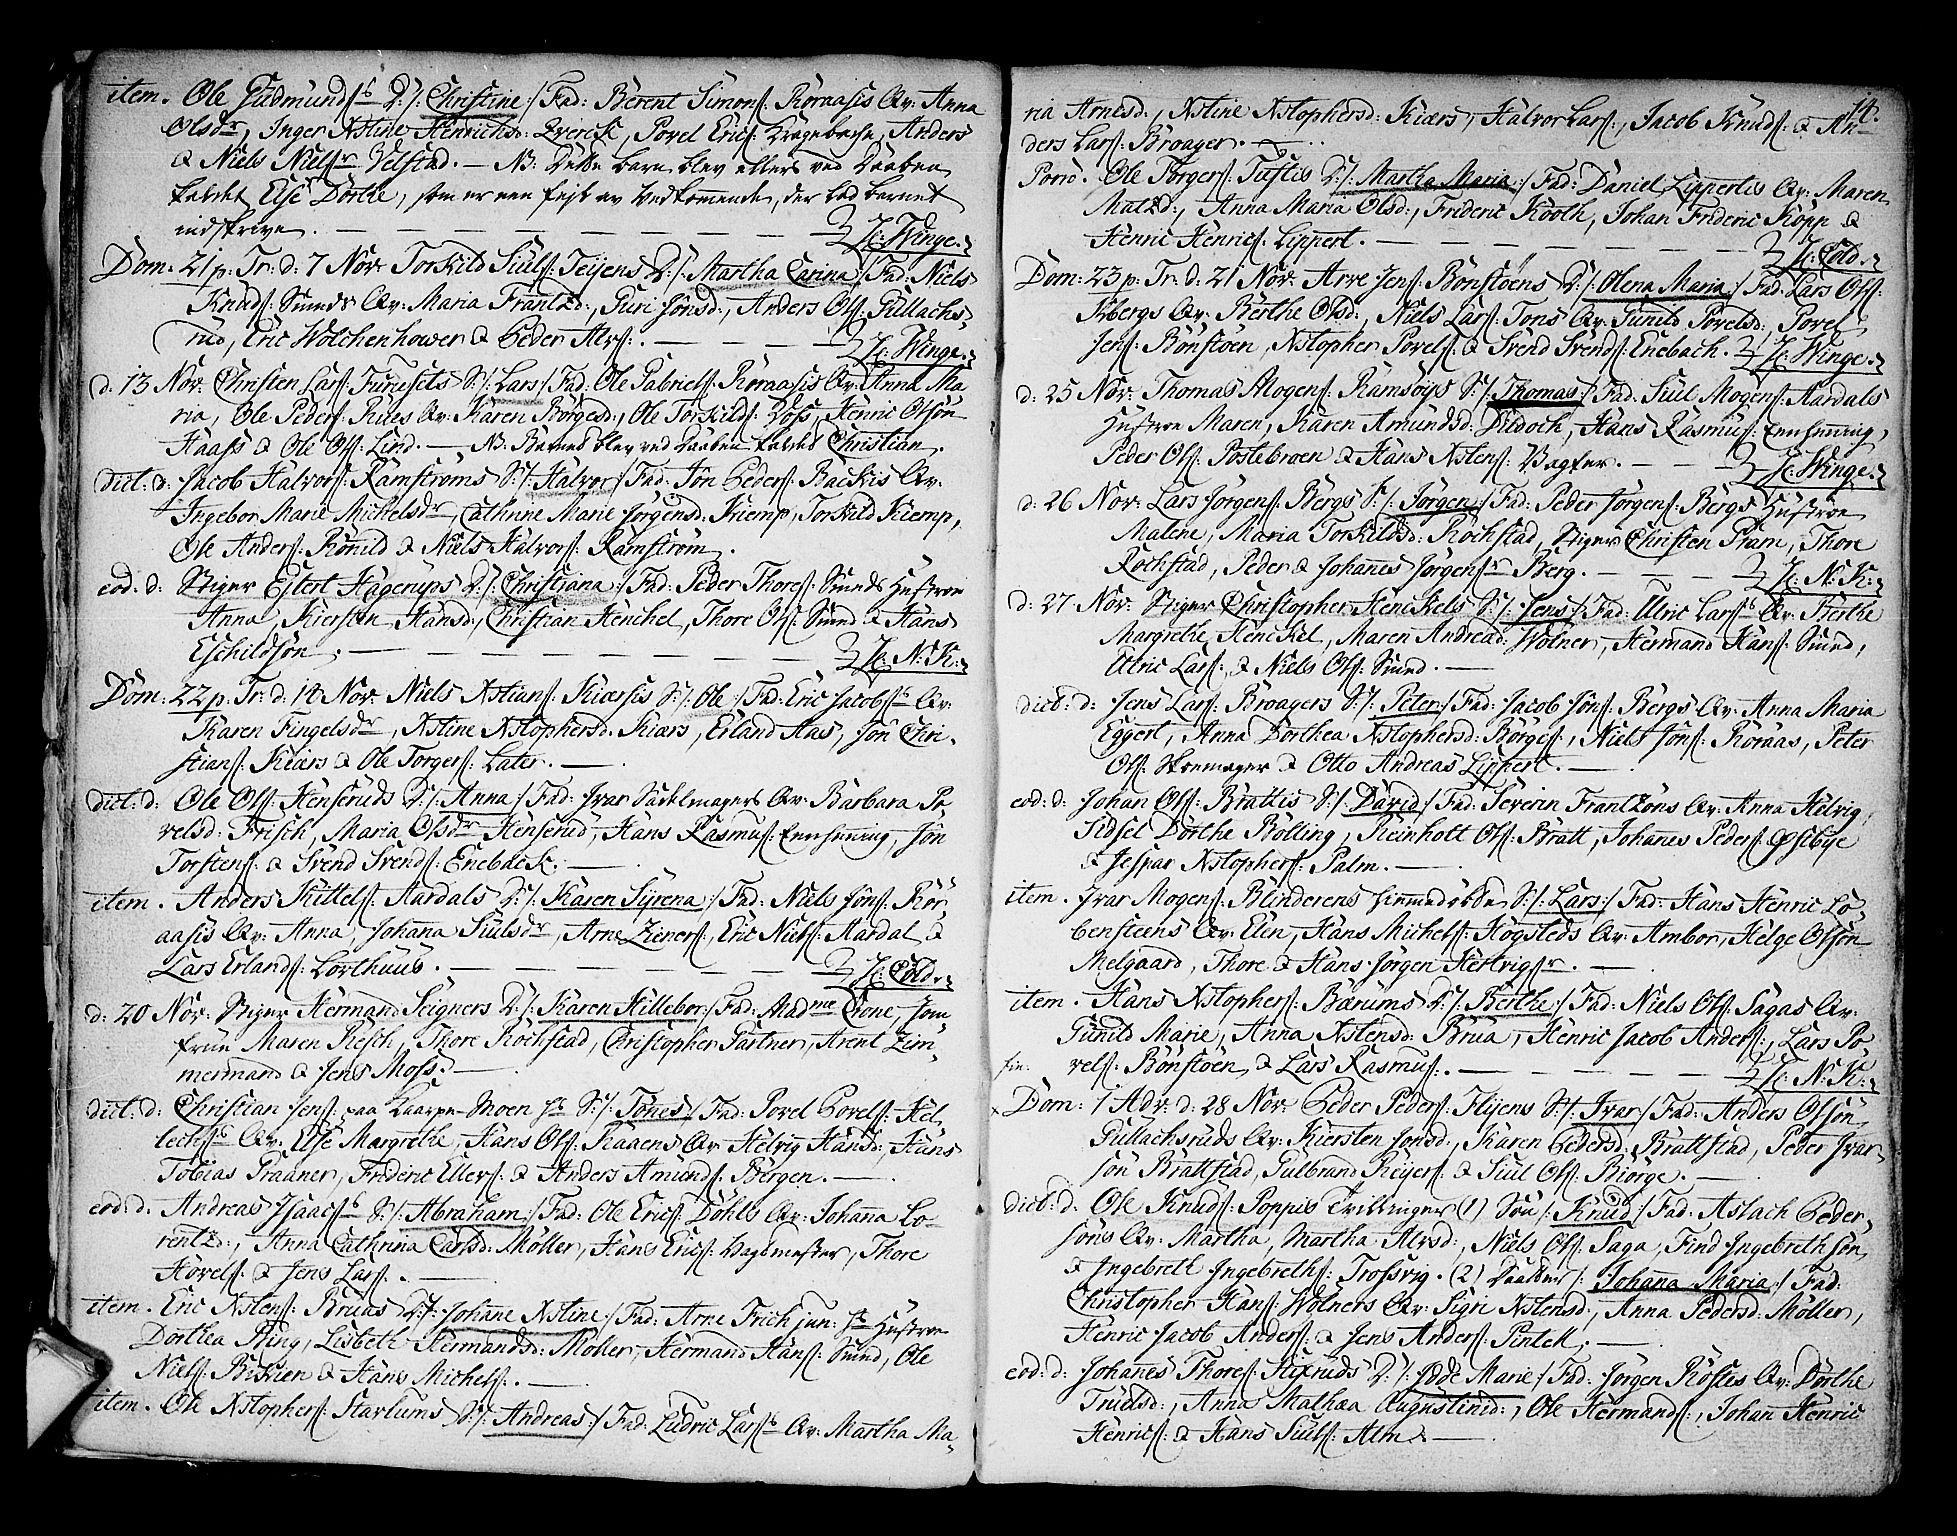 item. Ole Gudmunds: D:/: Christine :/ Fad: Berent Simons: Roraasis Qv: Anna
Olsdr, Inger Xstine Henrichs: Zverck, Povel Erics: Kragebache, Anders
& Niels Nielsr Velstad. — NB: Dette barn blev ellers ved Daaben
kaldet Else Dorthe, som er een fejl av Vedkommende, der lod barnet
indskrive. — — — — — — H: Winge.
Dom: 21 p: Tr: d: 7 Nov: Torkild Siuls: Teijens D:/: Martha Carina :/ Fad: Niels
Knuds: Smeds Qv: Maria Frantzd:, Guri Jonsd:, Anders Ols: Gullachs-
rud, Eric Wolchenhower & Peder Alvs:. — — — H: Winge.
d: 13 Nov: Christen Lars: Furusets S:/: Lars :/ Fad: Ole Gabriels: Roraasis Qv: Anna Ma-
ria, Ole Peders: Rues Qv: Karen Börgesd:, Ole Torkilds: Voss, Henric Olsön
Haass & Ole Ols: Lind. — NB: Barnet blev ved Daaben kaldet Christian.
dict: d: Jacob Halvors: Ramströms S:/: Halvor :/ Fad: Jon Peders: Backis Qv:
Ingebor Marie Michelsdr, Cathrine Marie Jörgensd: Kiemp, Torkild Kiemp,
Ole Anders: Ronild & Niels Halvors: Ramström.
eod: d: Stiger Eylert Hagerups D:/: Christiana :/ Fad: Peder Thores: Smeds Hustroe
Anna, Kiersten Hansd:, Christian Henchel, Thore Ols: Smed & Hans
Eschildsön. — — — — — — H: N: K:
Dom: 22 p: Tr: d: 14 Nov: Niels Xstians: Kiærsis S:/: Ole :/ Fad: Eric Jacobs: Qv:
Karen Fingelsdr, Xstine Xstophersd: Kiærs, Erland Aas, Jon Chri-
stians: Kiærs & Ole Torgers: Later. —
dict: d: Ole Ols: Henseruds D:/: Anna :/ Fad: Ivar Sadelmagers Qv: Barbara Po-
velsd: Frisch, Maria Olsdr Henserud, Hans Rasmus: Ennhenning, Jon
Torstens: & Svend Svends: Eneback. —
item. Anders Kittels: Aardals D:/: Karen Syrena :/ Fad: Niels Jons: Ror-
aasis Qv: Anna, Johana Siulsdr, Arne Zieners:, Eric Niels: Aardal &
Lars Erlands: Lorthuus. — — — — H: Cold.
d: 20 Nov: Stiger Herman Seigners D:/: Karen Hillebor :/ Fad: Madme Crone, Jom-
frue Maren Resch, Thore Rochstad, Christopher Gartner, Arent Zim-
mermand & Jens Moss. —
dict: d: Christian Jens: paa Haarpe Moen S:/: Tönes :/ Fad: Povel Povels: Hel-
lechs: Qv: Else Margrethe, Hans Ols: Raaens Qv: Helvig Hansd:, Hans
Tobias Graaner, Frideric Ellers: & Anders Amunds: Börgen. —
eod: d: Andreas Isaacs: S:/: Abraham :/ Fad: Ole Erics: Dohls Qv: Johana Lo-
rentzd:, Anna Cathrina Carlsd: Möller, Hans Erics: Hagemester, Thore
Hovels: & Jens Lars:. —
item. Eric Xstens: Bruas D:/: Johane Xstine :/ Fad: Arne Frich jun: Hustroe
Dorthea Ring, Lisbeth Hermandsd: Möller, Hermand Hans: Smed, Ole
Niels: Biskien & Hans Michels:. —
item. Ole Xstophers: Starlums S:/: Andreas :/ Fad: Ludric Lars: Qv: Martha Ma-
14.
ria Arnesd:, Xstine Xstophersd: Kiærs, Halvor Lars:, Jacob Knuds: & An-
ders Lars: Broager. —
Ole Torgers: Tustis D:/: Martha Maria :/ Fad: Daniel Lippertis Qv: Maren
Matzd:, Anna Maria Olsd:, Frideric Kooth, Johan Frideric Kopp &
Henric Henrics: Lippert. — — — — — — H: Cold.
Dom: 23 p: Tr: d: 21 Nov: Arve Jens: Bonstoens D:/: Olena Maria :/ Fad: Lars Ols:
Kbergs Qv: Berthe Olsd:, Niels Lars: Tons Qv: Gunild Povelsd:, Povel
Jens: Bonstoen, Xstopher Povels: & Svend Svends: Enebach. H: Winge.
d: 25 Nov: Thomas Mogens: Ramsoys S:/: Thomas :/ Fad: Siul Mogens: Aardals
Hustroe Maren, Karen Amundsd: Dildoch, Hans Rasmus: Ennhenning,
Peder Ols: Postebroen & Hans Xstens: Vegter. — — H: Winge.
d: 26 Nov: Lars Jörgens: Bergs S:/: Jörgen :/ Fad: Peder Jörgens: Bergs Hustroe
Malene, Maria Torkildsd: Rochstad, Stiger Christen Pram, Thore
Rochstad, Peder & Johannes Jörgensr Berg. — — — H: N: K:
d: 27 Nov: Stiger Christopher Henckels S:/: Jens :/ Fad: Ulric Lars: Qv: Berthe
Margrethe Henckel, Maren Andread: Wolner, Hermand Hans: Smed,
Ulric Lars: & Niels Ols: Smed. —
dict: d: Jens Lars: Broagers S:/: Peter :/ Fad: Jacob Jons: Bergs Qv: Anna Maria
Eggert, Anna Dorthea Xstophersd: Börges:, Niels Jons: Roraas, Peter
Ols: Skoemager & Otto Andreas Lippert. —
eod: d: Johan Ols: Brattis S:/: David :/ Fad: Severin Frantzöns Qv: Anna Helvig,
Sidsel Dorthe Bölling, Reinholt Ols: Bratt, Johanes Peders: Øsebye
& Jespar Xstophers: Palm. —
item. Ivar Mogens: Blinderens S:/: Lars :/ Fad: Hans Henric Lo-
bensteens Qv: Elen, Hans Michels: Högsteds Qv: Ambor, Helge Olsön
Melgaard, Thore & Hans Jörgen Hertvigsr. —
item. Hans Xstophers: Bærums D:/: Berthe :/ Fad: Niels Ols: Sagas Qv:
Gunild Marie, Anna Xstensd: Brua, Henric Jacob Anders:, Lars Po-
vels: Bonstoen, & Lars Rasmus:. — — — — — H: N: K:
Dom: 1 Adv: d: 28 Nov: Peder Peders: Flyens S:/: Ivar :/ Fad: Anders Olsön
Gullachsruds Qv: Kiersten Jonsd:, Karen Pedersd: Brattstad, Peder Ivar-
sön Brattstad, Gulbrand Reijers: & Siul Ols: Biörge. —
dict: d: Ole Knuds: Poppis Tvillinger (1) Sön /: Knud :/ Fad: Aslach Peder-
söns Qv: Martha, Martha Alvsd:, Niels Ols: Saga, Find Ingebrethsön,
& Ingebrett Ingebreths: Trossvig. (2) Daatter /: Johana Maria :/ Fad:
Christopher Hans: Wolners Qv: Sigri Xstensd:, Anna Pedersd: Möller,
Henric Jacob Anders: & Jens Anders: Pintch. —
eod: d: Johanes Thores: Hexruds D:/: Ædde Marie :/ Fad: Jörgen Röstis Qv: Dorthe
Truelsd:, Anna Mathæa Augustinid:, Ole Hermands:, Johan Henric
Henrics: & Hans Siuls: Alm. —